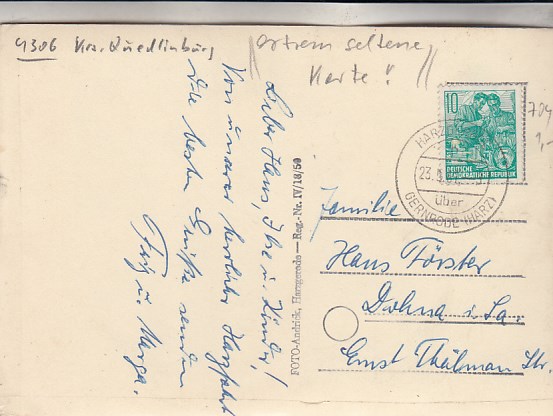 4306 Krs. Quedlinburg
"extrem seltene
Karte!"
Liebe Hans, Ilse u. Kinder!
Von unserer herrlichen Harzfahrt
die besten Grüße senden
Fritz u. Marga.
FOTO-Andrick, Harzgerode — Reg.-Nr. IV/18/59
10
DEUTSCHE
DEMOKRATISCHE REPUBLIK
704
1,-
HARZ
23.
über
GERNRODE (HARZ)
Familie
Hans Förster
Dohna i. Sa.
Ernst Thälman Str.